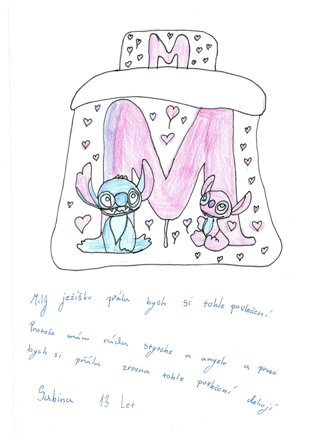 M
M
Milý ježíšku přála bych si tohle povlečení
Protože mám ráda styche a angelu a proto
bych si přála zrovna tohle povlečení děkuji
Sabina 13 Let